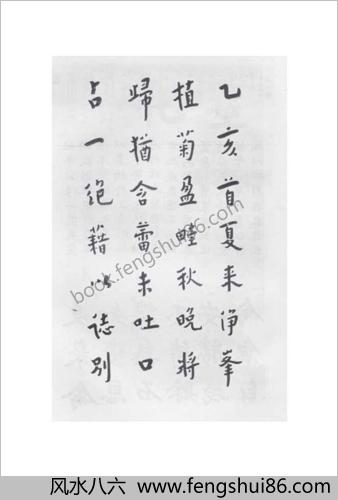 乙亥首夏来淨峯
植菊盈畦秋晚將
歸猶含蕾未吐口
占一絕藉以誌別
book.fengshui86.com
风水八六 www.fengshui86.com